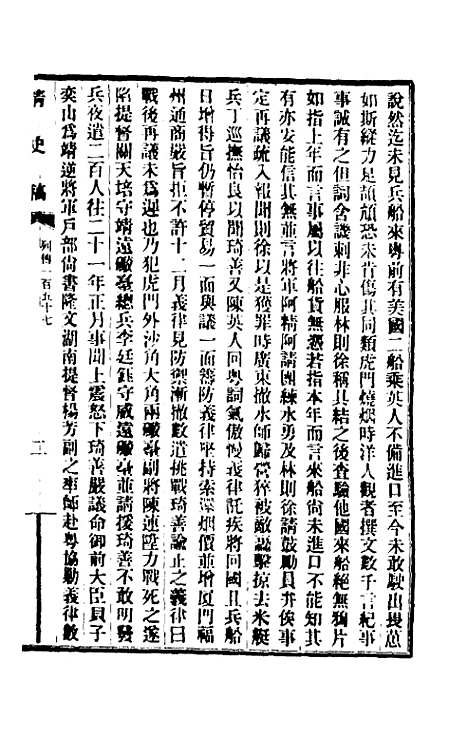 說然迄未見兵船來粵前有美國二船乘英人不備進口至今未敢駛出摟葸
如斯縱力足頡頏恐未肯傷其同類虎門燒烟時洋人觀者撰文數千言紀事
事誠有之但詞含譏刺非心服林則徐稱其結之後查驗他國來船絕無鴉片
如指上年而言事屬以往船貨無憑若指本年而言來船尙未進口不能知其
有亦安能信其無並言將軍阿精阿請團練水勇及林則徐請鼓勵員弁俟事
定再議疏入報聞則徐以是獲罪時廣東撤水師歸營猝被敵轟擊掠去米艇
兵丁巡撫怡良以聞琦善又陳英人回粵詞氣傲慢義律託疾將回國且兵船
日增得旨仍暫停貿易一面與議一面籌防義律堅持索還烟價並增厦門福
州通商嚴旨拒不許十二月義律見防禦漸撤數遣挑戰琦善諭止之義律曰
戰後再議未爲遲也乃犯虎門外沙角大角兩礮臺副將陳連陞力戰死之遂
陷提督關天培守靖遠礮臺總兵李廷鈺守威遠礮臺並請援琦善不敢明發
兵夜遣二百人往二十一年正月事聞上震怒下琦善嚴議命御前大臣貝子
奕山爲靖逆將軍戶部尙書隆文湖南提督楊芳副之率師赴粵協勦義律數
淸史稿 列傳一百五十七 二